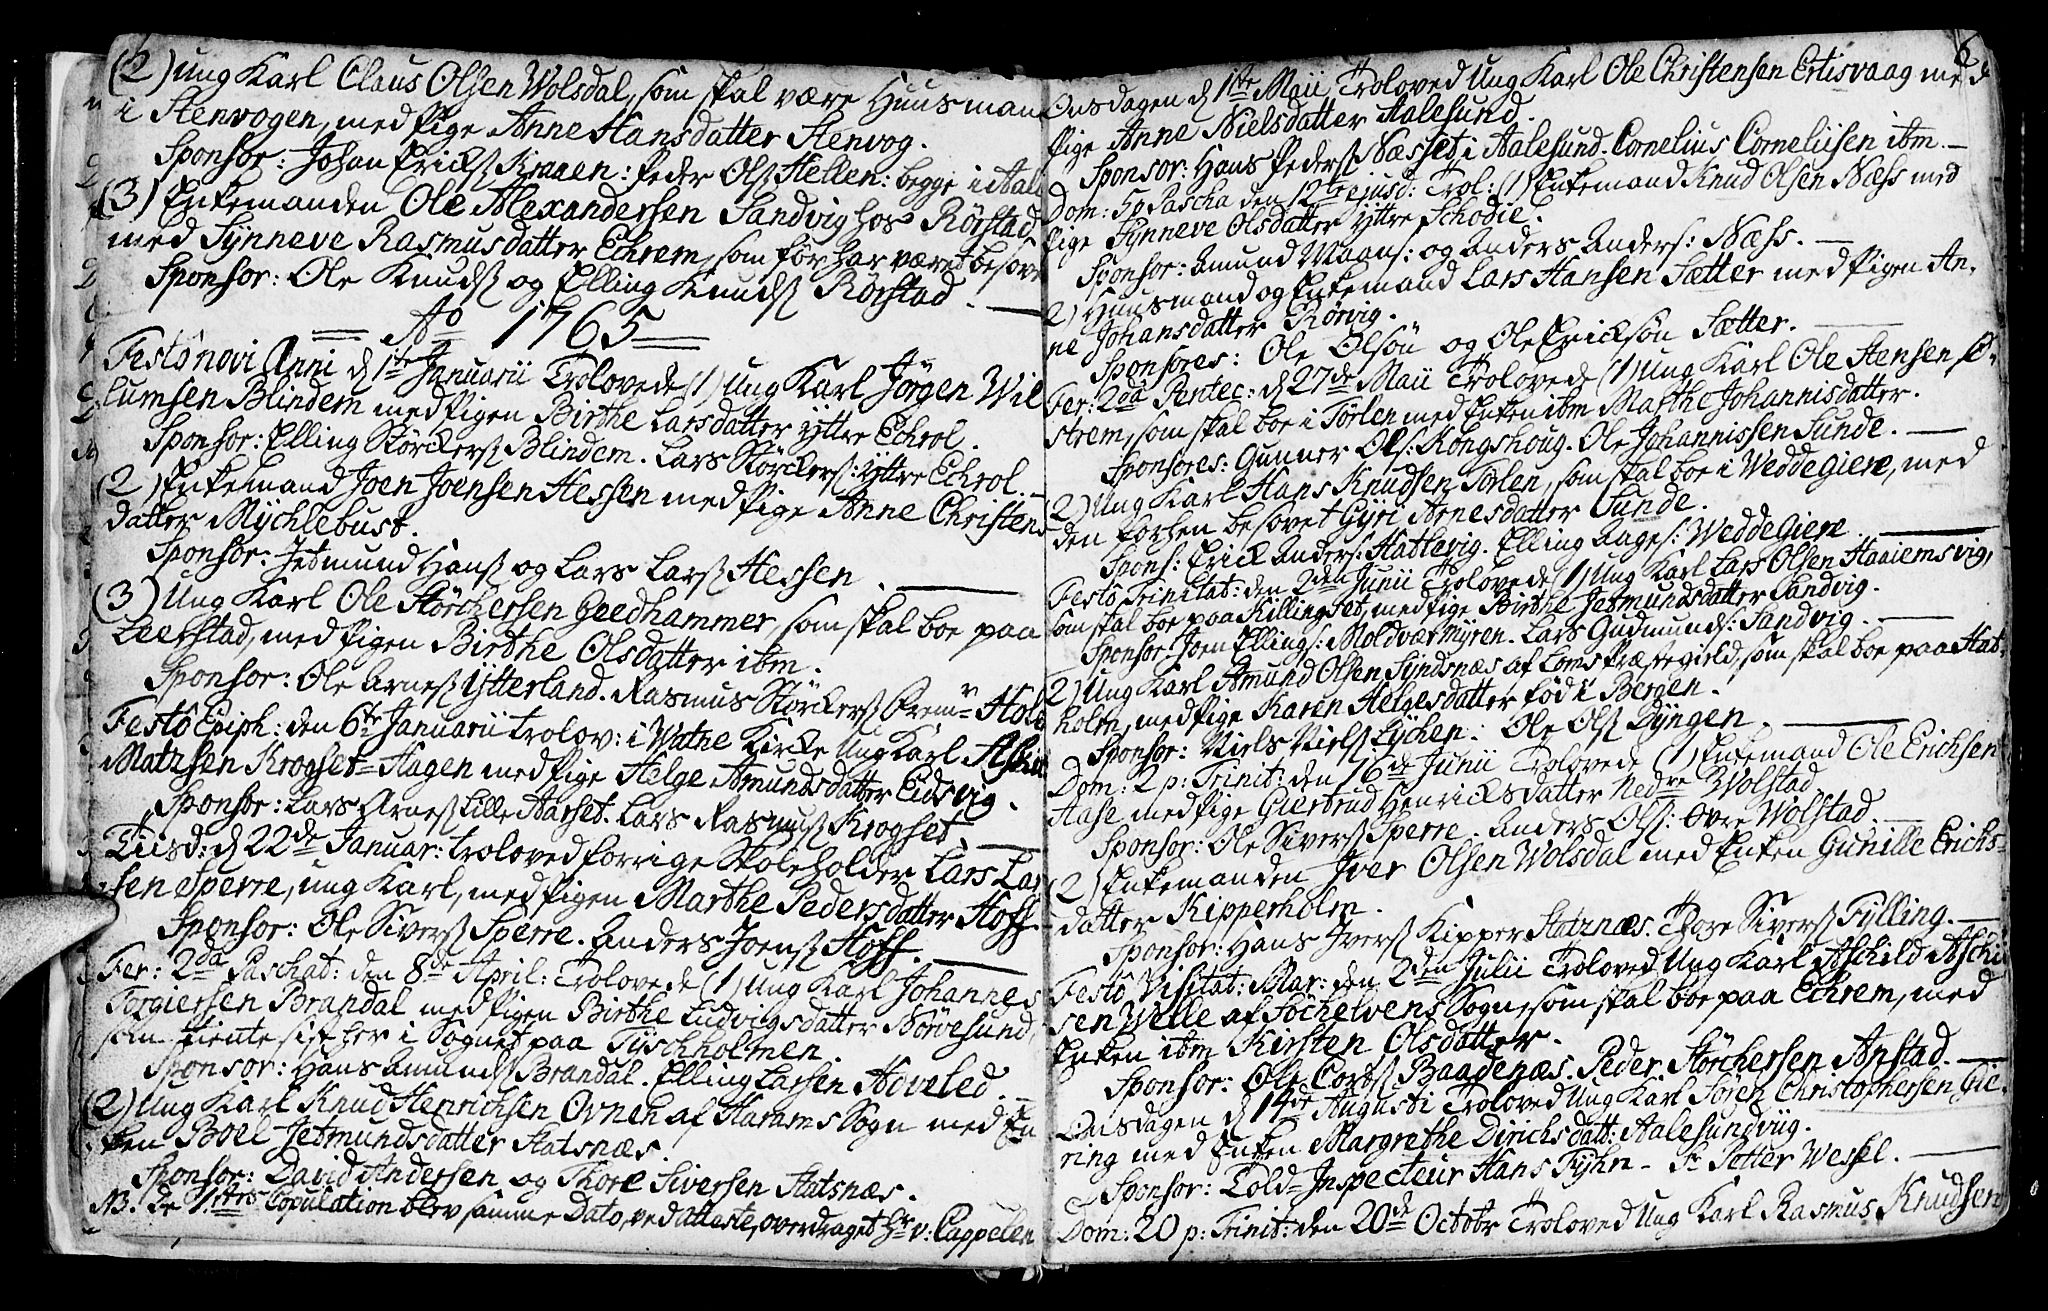 (2) Ung Karl Claus Olsen Wolsdal, som skal være Huusmand
i Stenvogen, med Pige Anne Hansdatter Stenvog.
Sponsor: Johan Ericks. Kraaen: Peder Ols. Hellen: begge i Aale
(3) Enkemanden Ole Alexandersen Sandvig hos Rörstad
med Synneve Rasmusdatter Echrem, som för har været besove
Sponsor: Ole Knuds. og Elling Knuds. Rörstad.
Ao 1765
Festô novi Anni d. 1te Januarii Trolovede (1) Ung Karl Jörgen Wil
lumsen Blindem med Pigen Birthe Larsdatter Yttre Echrol.
Sponsor: Elling Störckers. Blindem. Lars Störckers: Yttre Echrol.
(2) Enkemand Joen Joensen Hessen med Pige Anne Christens
datter Mychlebust.
Sponsor: Jetmund Hans. og Lars Lars. Hessen.
(3) Ung Karl Ole Störchersen Geedhammer, som skal boe paa
Leerstad, med Pigen Birthe Olsdatter ibm.
Sponsor: Ole Arnes. Ytterland. Rasmus Störckers.
Festô Epiph: den 6te Januarii trolov: i Watne Kirke Ung Karl
Matzsen Krogset-Hagen med Pige Helge Amundsdatter Eidsvig.
Sponsor: Lars Arnes. Lille Aarset. Lars Rasmus. Krogset.
Tiisd: d. 22de Januar: troloved forrige Skoleholder Lars Lar
sen Sperre, ung Karl, med Pigen Marthe Pedersdatter Hoff
Sponsor: Ole Sivers. Sperre. Anders Joens. Hoff.
Fer: 2da Paschat: den 8de April: Trolovede (1) Ung Karl Johannes
Torgiersen Brandal med Pigen Birthe Ludvigsdatter Nörvesund,
som tiente sist her i Sognet paa Tyschholmen.
Sponsor: Hans Amunds. Brandal. Elling Larsen Adveled.
(2) Ung Karl Knud Henrichsen Ovneh af Harams Sogn med En
ken Boel Jetmundsdatter Statsnæs.
Sponsor: David Andersen og Thore Siversen Statsnæs.
NB. de 1stes Copulation blev samme Dato, ved atteste, overdraget Hr. v: Cappelen
6
Onsdagen d. 1te Maii Troloved Ung Karl Ole Christensen Ertisvaag med
Pige Anne Nielsdatter Aalesund.
Sponsor: Hans Peders. Næsset i Aalesund. Cornelius Corneliisen ibm.
Dom: 5 p Pascha den 12te ejusd: Trol: (1) Enkemand Knud Olsen Næss med
Pige Synneve Olsdatter Yttre Schodie.
Sponsor: Amund Maans: og Anders Anders: Næss.
2) Huusmand og Enkemand Lars Hansen Sætter med Pigen An-
ne Johansdatter Rörvig.
Sponsores: Ole Olsön og Ole Ericksön Sætter.
Fer: 2da Pentec: d. 27de Maii Trolovede (1) Ung Karl Ole Stensen
strem, som skal boe i Törlen med Enken ibm Marthe Johannisdatter.
Sponsores: Gunner Ols: Kongshoug. Ole Johannissen Sunde.
2) Ung Karl Hans Knudsen Törlen, som skal boe i Weddegiere, med
den forhen besovet Gyri Arnesdatter Sunde.
Spons: Erick Anders: Hattevig. Elling Aages: Weddegiere.
Festô Trinitat: den 2den Junii Trolovede (1) Ung Karl Lars Olsen Haaiemsvig,
som skal boe paa Killingset, med Pige Birthe Jetmundsdatter Sandvig.
Sponsor Joen Ellings: Moldværmyren. Lars Gudmunds: Sandvig.
2) Ung Karl Amund Olsen Syndsnæs af Loms Præstegield, som skal boe paa Hat-
holm, med Pige Karen Helgesdatter föd i Bergen.
Sponsor: Niels Niels. Lychen: Ole Ols. Dyngen.
Dom: 2 p: Trinit: den 16de Junii Trolovede (1) Enkemand Ole Erichsen
Aase med Pige Giertrud Henricksdatter Nedre Wolstad
Sponsor: Ole Sivers. Sperre. Anders Ols: Övre Wolstad.
(2) Enkemanden Iver Olsen Wolsdal med Enken Gunille Erichs-
datter Kipperholm.
Sponsor: Hans Ivers. Kipper Statznæs. Thore Sivers. Fylling.
Festô Visitat: Mar: den 2den Julii Troloved Ung Karl Aschild Aschil
sen Welle af Söchelvens Sogn, som skal boe paa Echrem, med
Enken ibm Kirsten Olsdatter.
Sponsor: Ole Cords. Baadenæs. Peder Störchersen Anstad.
Onsdagen d. 14de Augusti Troloved Ung Karl Sören Christophersen Gie-
ring med Enken Margrethe Dirichsdatt: Aalesundviig.
Sponsor: Told-Inspecteur Hans Fyhn - Sr. Petter Wessel.
Dom: 20 p: Trinit: den 20de Octobr Troloved Ung Karl Rasmus Knudsen